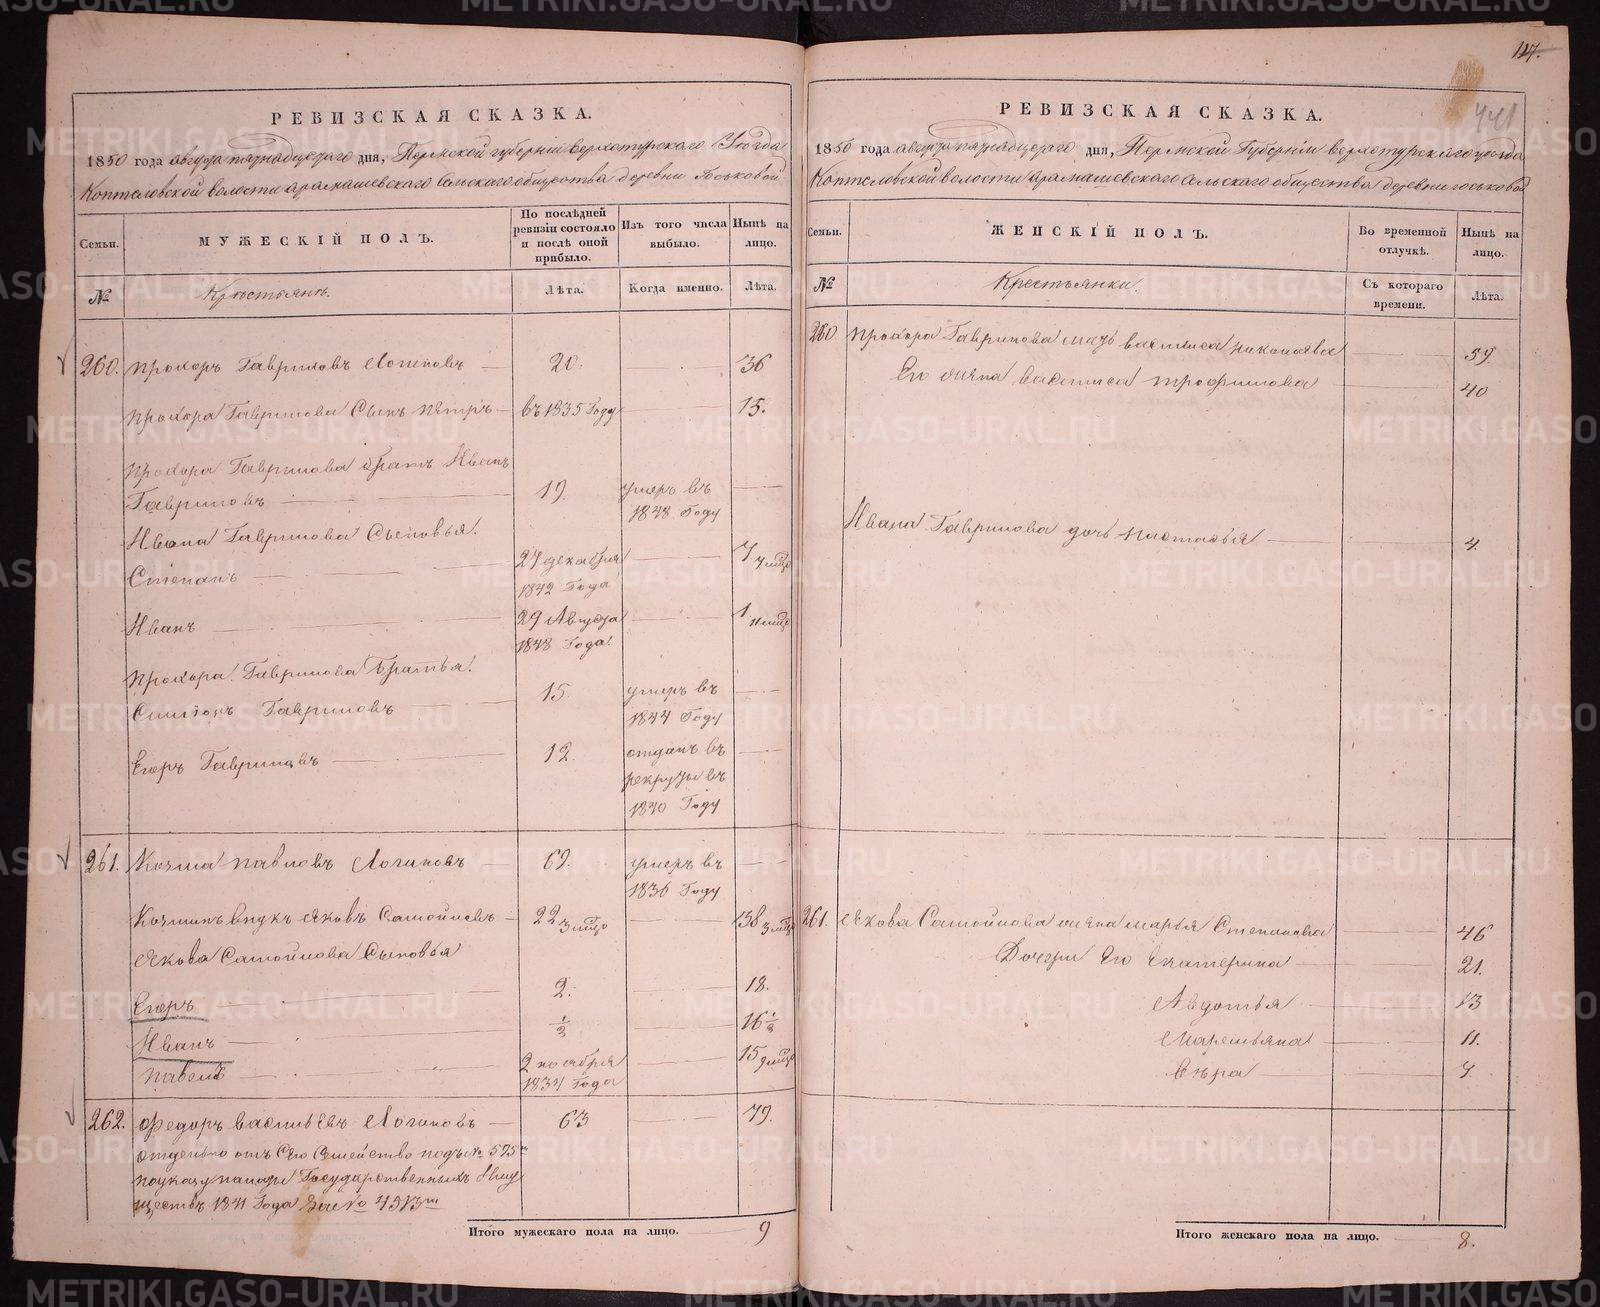 РЕВИЗСКАЯ СКАЗКА.
1850 года августа пятнадцатого дня, Пермской губернии Верхотурского Уезда
Коптеловской волости арамашевского сельского общества деревни Госьковой
Семьи.
МУЖЕСКІЙ ПОЛЪ.
По послѣдней ревизіи состояло и послѣ оной прибыло.
Изъ того числа выбыло.
Нынѣ на лицо.
№
Крестьянъ.
Лѣта.
Когда именно.
Лѣта.
260. Прохоръ Гавриловъ Логиновъ 20. 36
Прохора Гаврилова Сынъ Пётръ въ 1835 Году 15.
Прохора Гаврилова братъ Иванъ
Гавриловъ 19. умеръ въ
1848 Году
Ивана Гаврилова Сыновья.
Степанъ 27 декабря 7
1842 Года
Иванъ 29 Августа 1
1848 Года
Прохора Гаврилова Братья.
Симионъ Гавриловъ 15 умеръ въ
1844 Году
Егоръ Гавриловъ 12 отданъ въ
рекруты въ
1840 Году
261. Козма Павловъ Логиновъ 69. умеръ въ
1836 Году
Козминъ внукъ Яковъ Самойловъ 22 38
Якова Самойлова Сыновья
Егоръ 2. 18.
Иванъ 1/2 16 1/2
Павелъ 2 ноября 15
1834 Года
262. Федоръ Васильевъ Логиновъ 63 79.
отдельно отъ Его Семейства подъ № 525
по указу палаты Государственныхъ Иму
ществъ 1841 Года За №
Итого мужескаго пола на лицо. 9
117.
441
РЕВИЗСКАЯ СКАЗКА.
1850 года августа пятнадцатого дня, Пермской Губернии верхотурского уезда
Коптеловской волости арамашевского Сельского общества деревни госьковой
Семьи.
ЖЕНСКІЙ ПОЛЪ.
Во временной отлучкѣ.
Нынѣ на лицо.
№
Крестьянки.
Съ котораго времени.
Лѣта.
260 Прохора Гаврилова мать василиса николаева 59.
Его жена василиса трофимова 40
Ивана Гаврилова дочь настасья 4.
261. Якова Самойлова жена марья Степановна 46
Дочери Его Екатерина 21.
Авдотья 13
Маремьяна 11.
Вѣра
Итого женскаго пола на лицо. 8.
METRIKI.GASO-URAL.RU